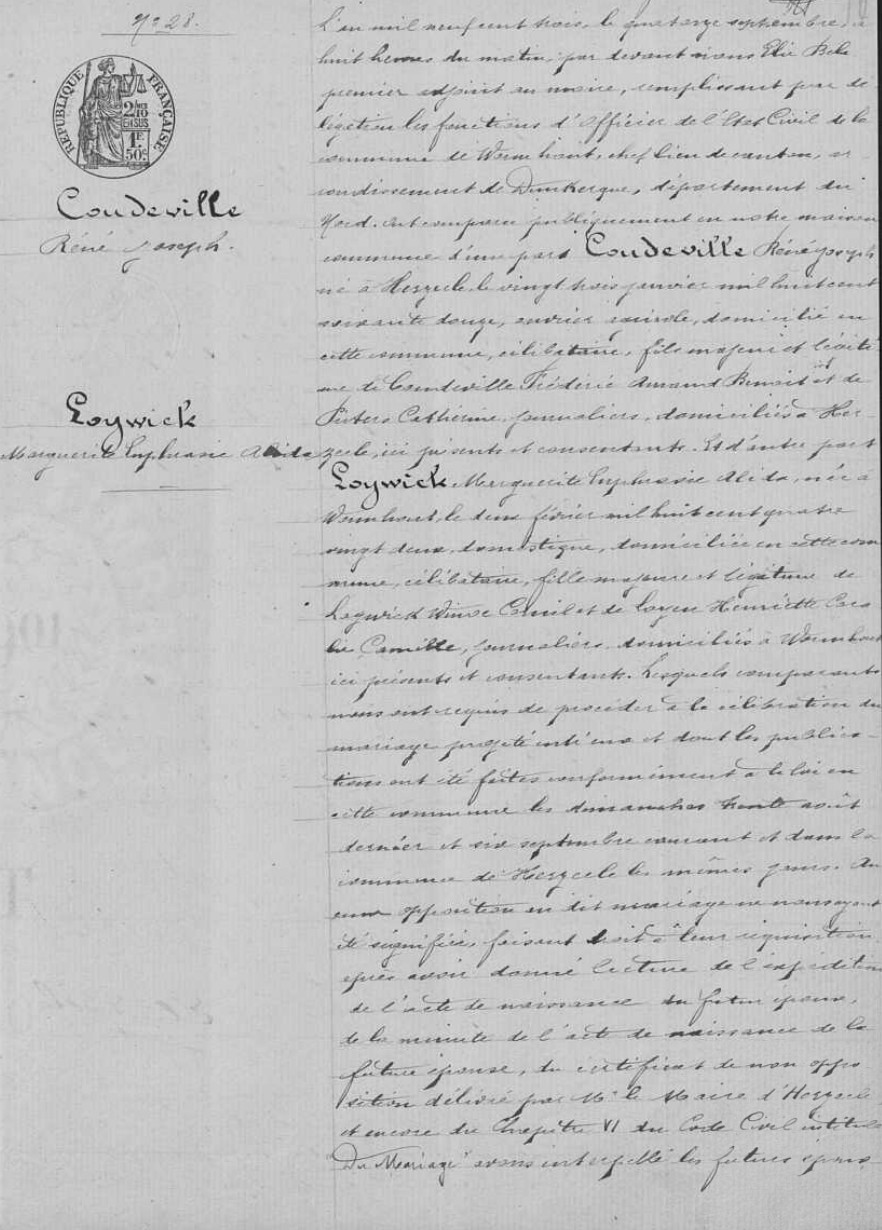 N° 28.
RÉPUBLIQUE FRANÇAISE
2/10
EN SUS
1F
50c
Coudeville
Réné Joseph.
Loywick
Marguerite Euphrasie Alida
L'an mil neuf cent trois, le quatorze septembre, à
huit heures du matin, par devant nous Elie Bele
premier adjoint au maire, remplissant par dé
légation les fonctions d'Officier de l'Etat Civil de la
commune de Wormhout, chef lieu de canton, ar
rondissement de Dunkerque, département du
Nord. ont comparu publiquement en notre maison
commune d'une part Coudeville Réné Joseph
né à Herzeele le vingt trois janvier mil huit cent
soixante douze, ouvrier agricole, domicilié en
cette commune, célibataire, fils majeur et légiti
me de Coudeville Frédéric Amand Benoit et de
Pieters Catherine, journaliers, domiciliés à Her-
zeele, ici présents et consentants. Et d'autre part
Loywick Marguerite Euphrasie Alida, née à
Wormhout, le deux février mil huit cent quatre
vingt deux, domestique, domiciliée en cette com
mune, célibataire, fille majeure et légitime de
Loywick Winoc Camil et de Henriette
Camille, journaliers, domiciliés à Wormhout
ici présents et consentants. Lesquels comparants
nous ont requis de procéder à la célébration du
mariage projeté entre eux et dont les publica-
tions ont été faites conformément à la loi en
cette commune les dimanches trente août
dernier et six septembre courant et dans la
commune de Herzeele les mêmes jours. Au
cune opposition au dit mariage ne nous ayant
été signifiée, faisant droit à leur réquisition,
après avoir donné lecture de l'expédition
de l'acte de naissance du futur époux,
de la minute de l'acte de naissance de la
future épouse, du certificat de non oppo
sition délivré par Mr le Maire d'Herzeele
et encore du Chapitre VI du Code Civil intitulé
"Du Mariage" avons interpellé les futurs époux